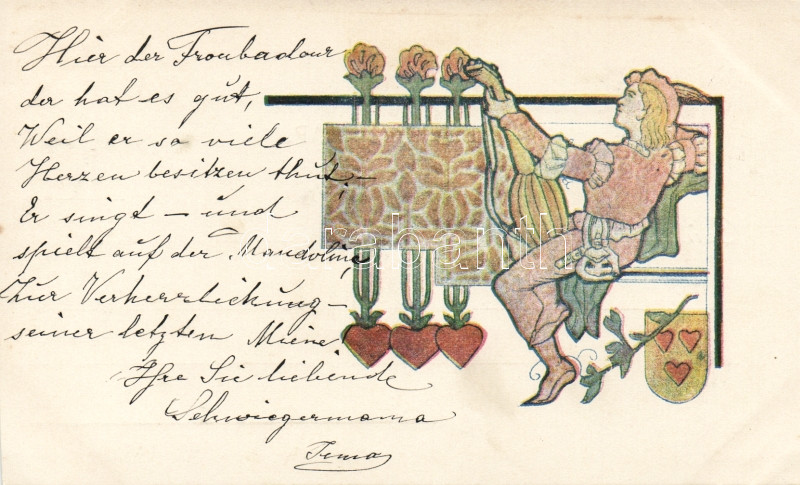 Hier der Troubadour
der hat es gut,
Weil er so viele
Herzen besitzen thut –
Er singt – und
spielt auf der Mandoline,
Zur Verherrlichung –
seiner letzten Miene!
Ihre Sie liebende
Schwiegermama
Irma
rabanth